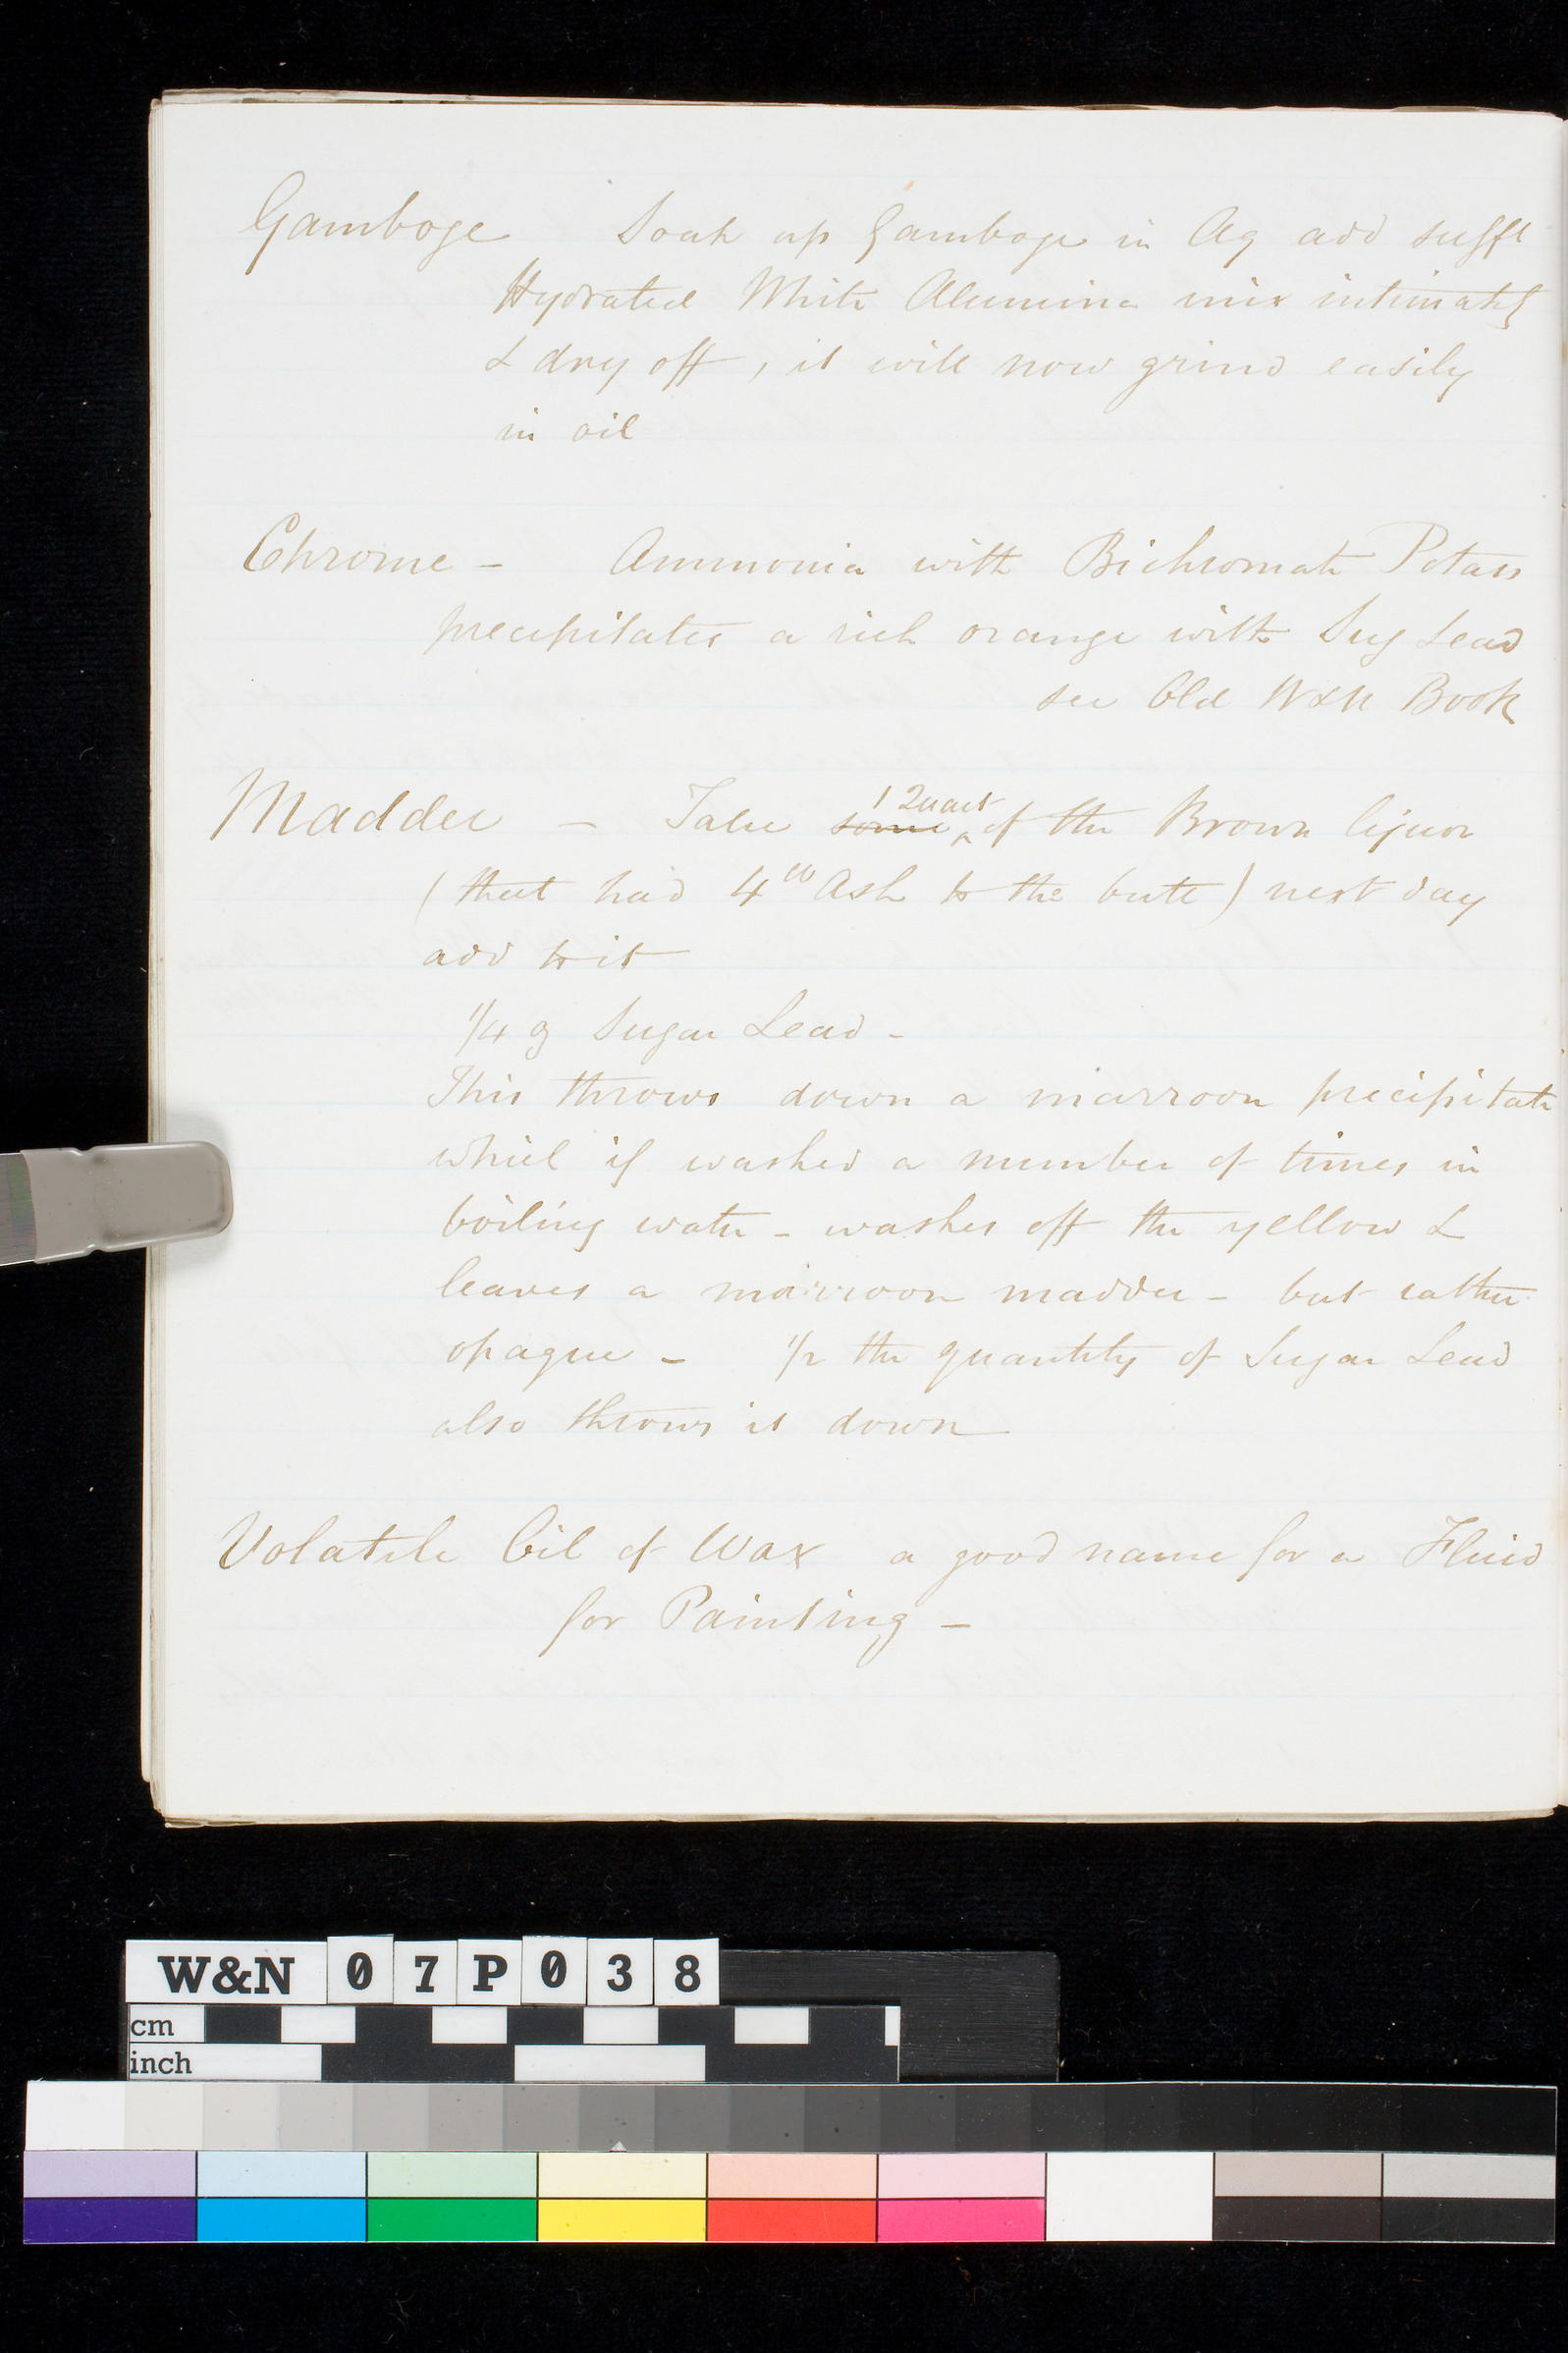 Gamboge Soak up Gamboge in Aq add sufft
Hydrated White Alumina mix intimately
& dry off, it will now grind easily
in oil
Chrome - Ammonia with Bichromate Potass
precipitates a rich orange with Sug Lead
see Old W&N Book
Madder - Take some 1 Quart of the Brown liquor
(that had 4 lb Ash to the bute) next day
add to it
1/4 ℥ Sugar Lead -
This throws down a marroon precipitate
which if washed a number of times in
boiling water - washes off the yellow &
leaves a marroon madder - but rather
opaque - 1/2 the quantity of Sugar Lead
also throws it down
Volatile Oil of Wax a good name for a Fluid
for Painting -
W&N 07P038
cm
inch